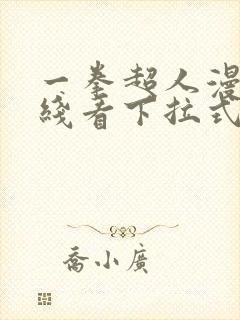 一拳超人漫
线看下拉式
乔小廣